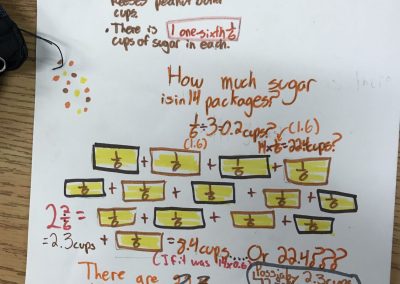 Reeses peanut butter
cups.
• There is 1 one-sixth 1/6
cups of sugar in each.
How much sugar
is in 14 packages?
1/6 ÷ 3 = 0.2 cups? (1.6)
(1.6) 14 x 1.6 = 22.4 cups?
1/6 + 1/6 + 1/6 + 1/6
1/6 + 1/6 + 1/6 + 1/6 + 1/6
2 2/6 = 1/6 + 1/6 + 1/6 + 1/6
= 2.3 cups + 1/6 = 8.4 cups.... Or 22.4???
(If it was 14x0.6)
There are
Possibly 2.3 cups